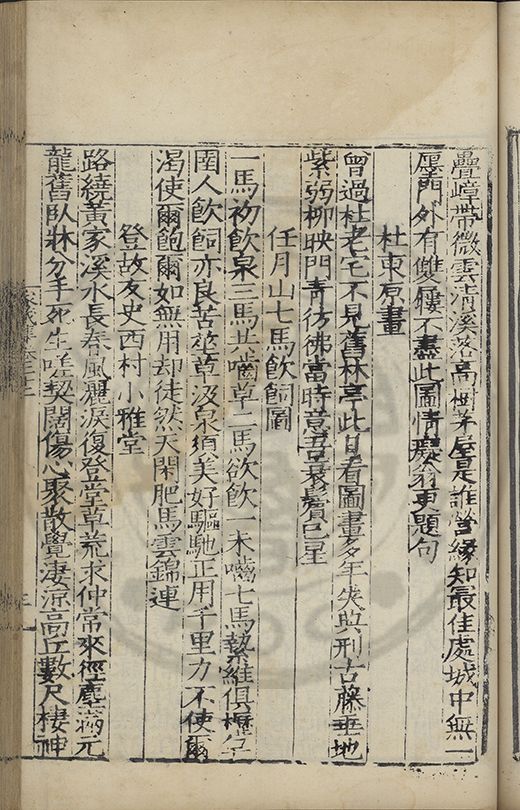 疊嶂帶微雲清溪落高樹茅屋是誰營緣知最佳處城中無一
廛門外有雙屨不盡此圖情癡翁更題句
杜東原畫
曾過杜老宅不見舊林亭此日看圖畫多年失典刑古藤垂地
紫弱柳映門青彷彿當時意吾衰鬢已星
任月山七馬飲飼圖
一馬初飲泉三馬共嚙草二馬欲飲一未嚙七馬縶維俱櫪皁
圉人飲飼亦良苦莝草汲泉須美好驅馳正用千里力不使爾
渴使爾飽爾如無用却徒然天閑肥馬雲錦連
登故友史西村小雅堂
路繞黃家溪水長春風灑淚復登堂草荒求仲常來徑塵滿元
龍舊臥牀分手死生嗟契闊傷心聚散覺淒涼高丘數尺棲神